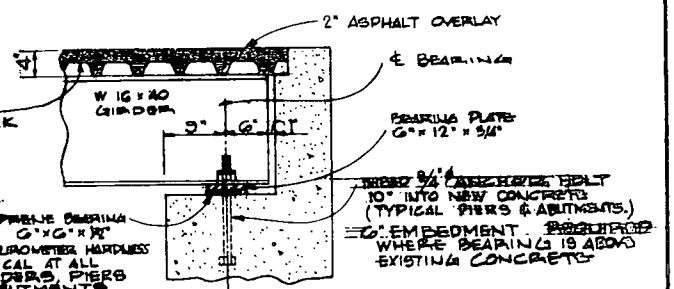 2" ASPHALT OVERLAY
4"
℄ BEARING
W 16 x 40
GIRDER
K
9"
6"
1"
BEARING PLATE
6" x 12" x 3/4"
3/4" ANCHOR BOLT
10" INTO NEW CONCRETE
(TYPICAL PIERS & ABUTMENTS.)
6" EMBEDMENT REQUIRED
WHERE BEARING IS ABOVE
EXISTING CONCRETE
PRENE BEARING
6" x 6" x 1/2"
UROMETER HARDNESS
CAL AT ALL
DERS, PIERS
UTMENTS